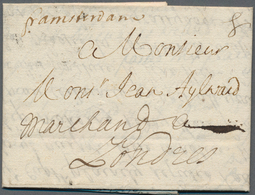 p amsterdam
8
a Monsieur
Mons.r Jean Aylward
Marchand a
Londres